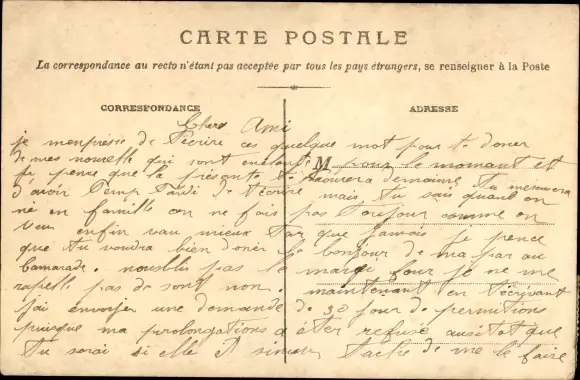 CARTE POSTALE
La correspondance au recto n'étant pas acceptée par tous les pays étrangers, se renseigner à la Poste
CORRESPONDANCE
ADRESSE
Cher Ami
je m'enpresse de t'écrire ces quelque mot pour te doner
de mes nouvelle qui sont M pour le momant et
je pence que la présente te trouvera demaime. Tu
d'avoir Temp Tardé de t'écrire mais tu sais quant on
né en famille on ne fais pas Toujour comme on
veu enfin vau mieux Tar que jamais je pence
que tu voudra bien doner le bonjour de ma par au
Camarade. noublis pas le pour je ne me
rapelle pas de sont non. maintenant en t'écrivant
j'ai envoyer une demande de 30 jour de permitions
puisque ma prolongations a éter refusé ausitot que
Tu sarai si elle Tache de me le faire